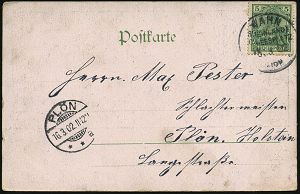 Postkarte
5
WAHN
Herrn Max Pester
Schlachtermeister
Plön, Holstein
Langestraße
PLÖN
16.3.02.